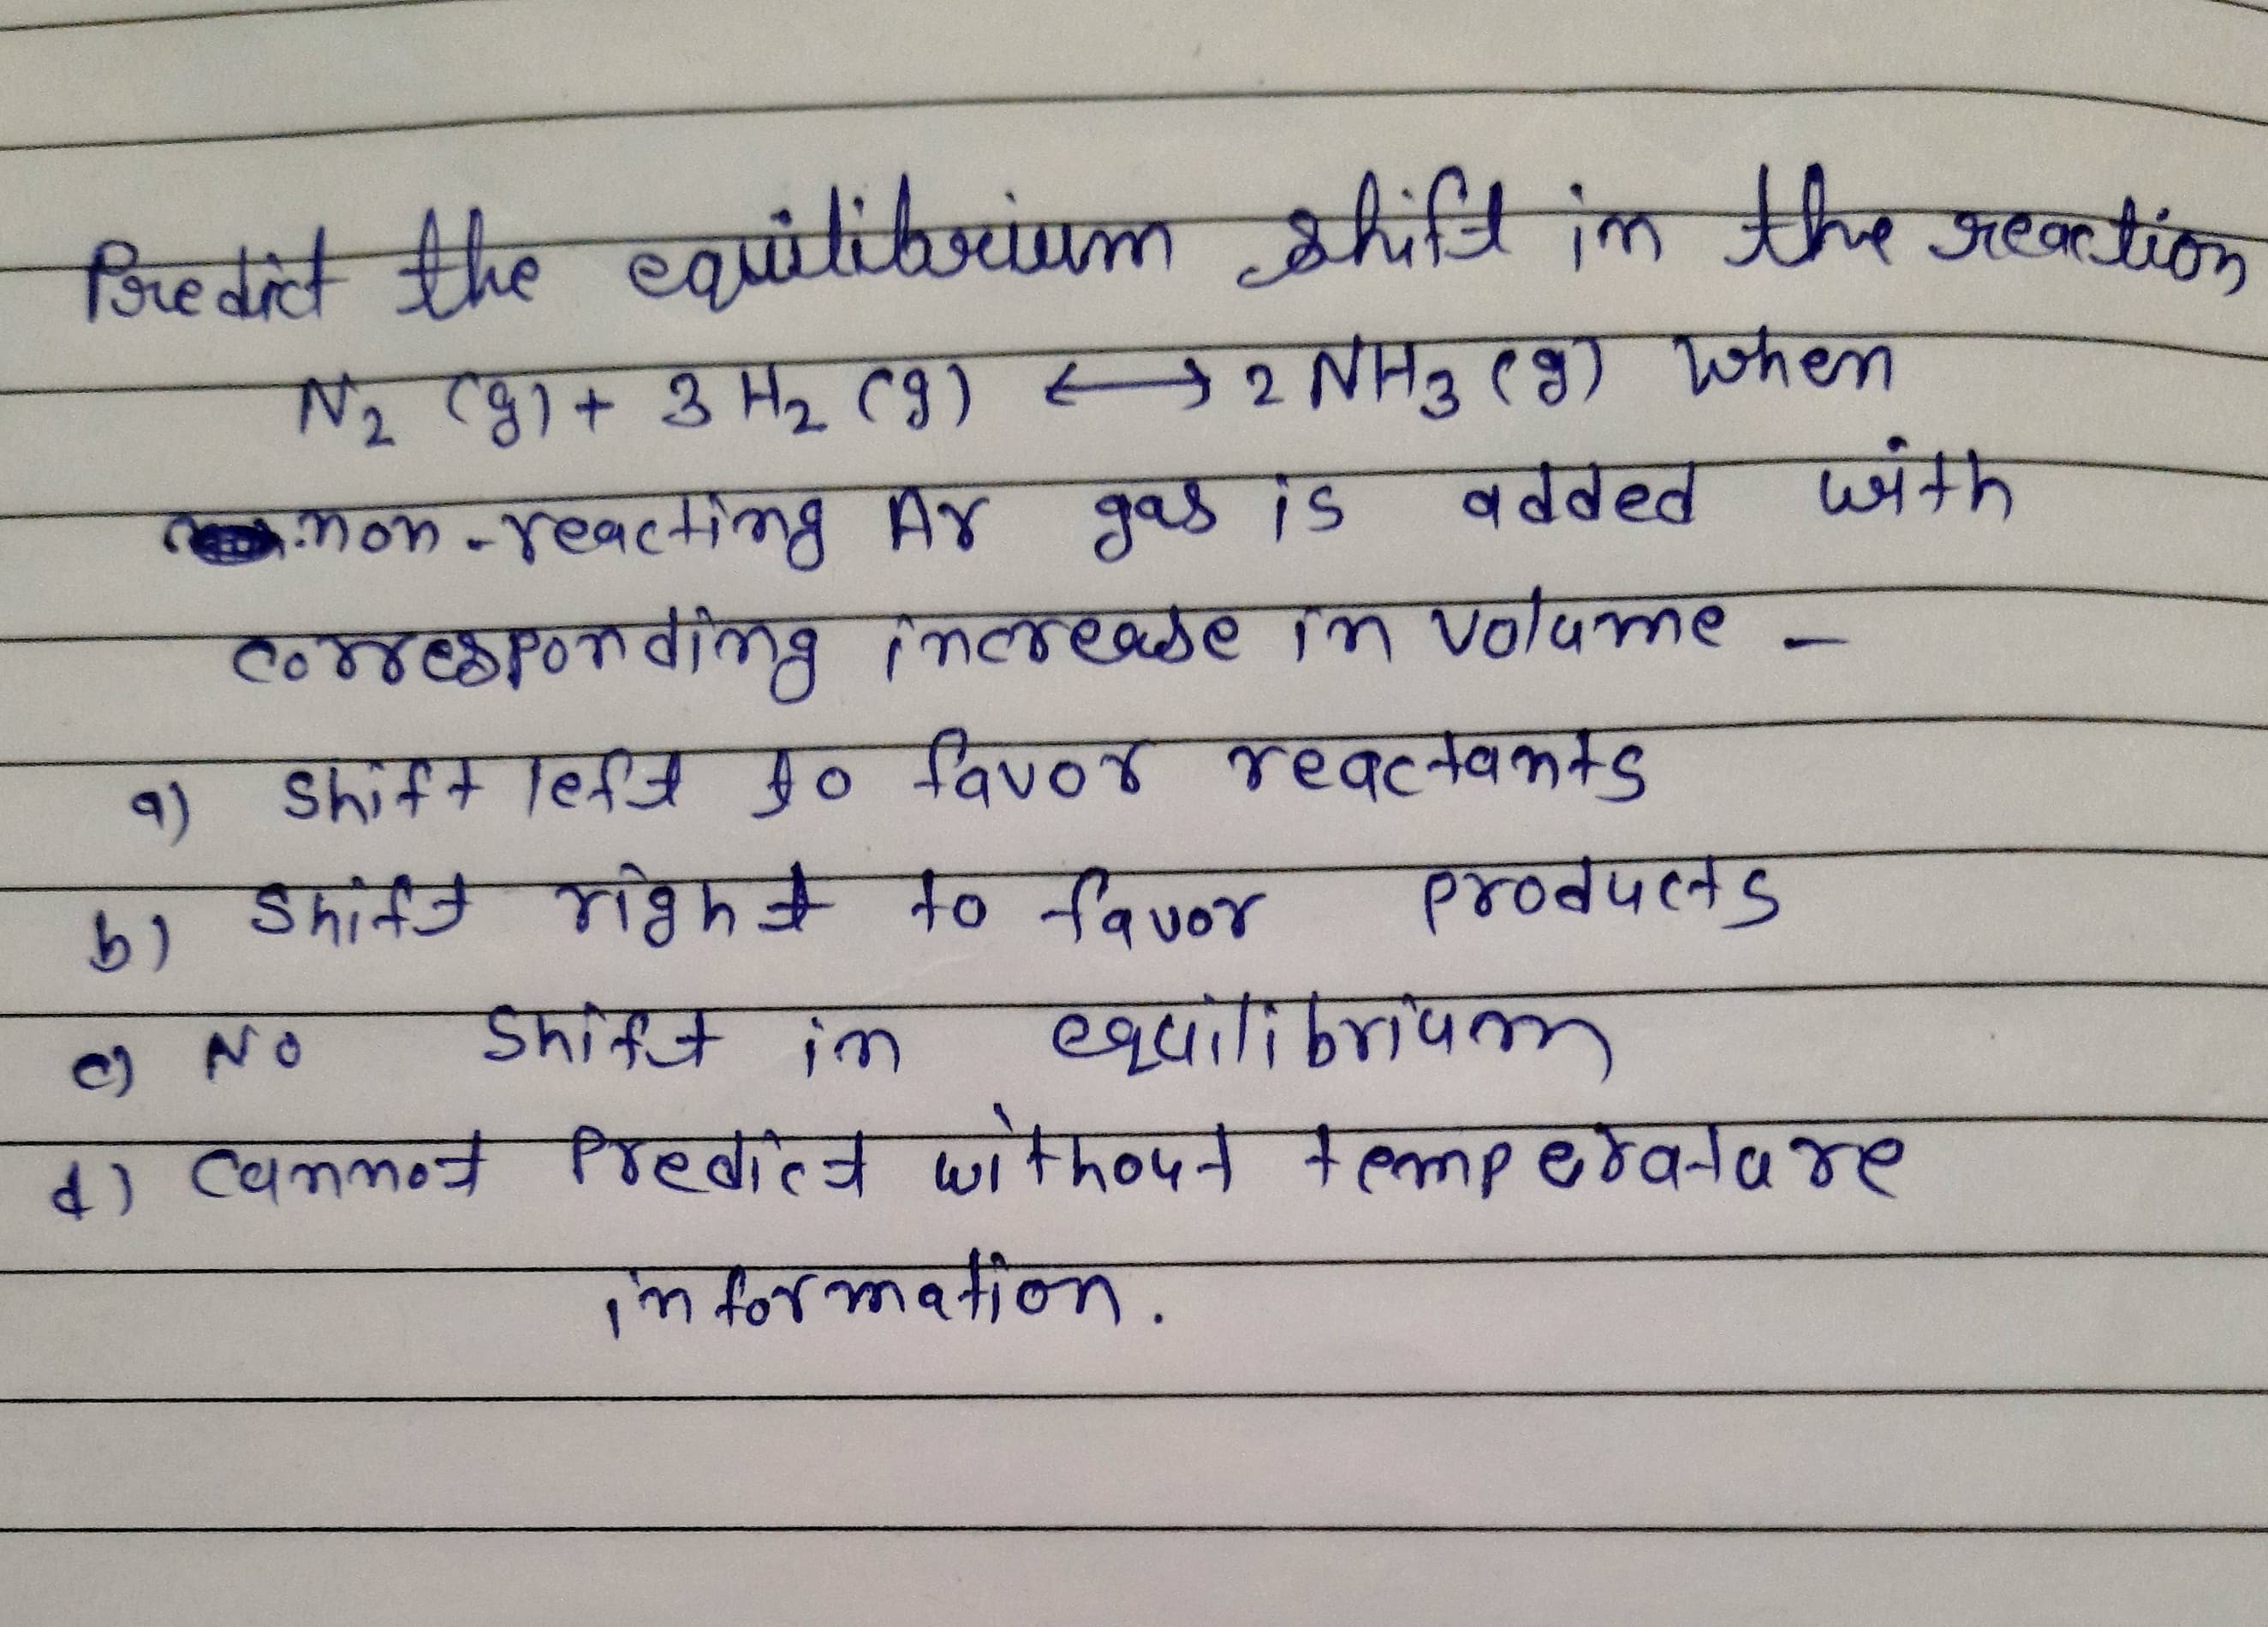 Predict the equilibrium shift in the reaction
N₂ (g) + 3H₂ (g) ⟷ 2NH₃ (g) when
non-reacting Ar gas is added with
corresponding increase in volume -
a) shift left to favor reactants
b) shift right to favor products
c) No shift in equilibrium
d) cannot Predict without temperature
information.